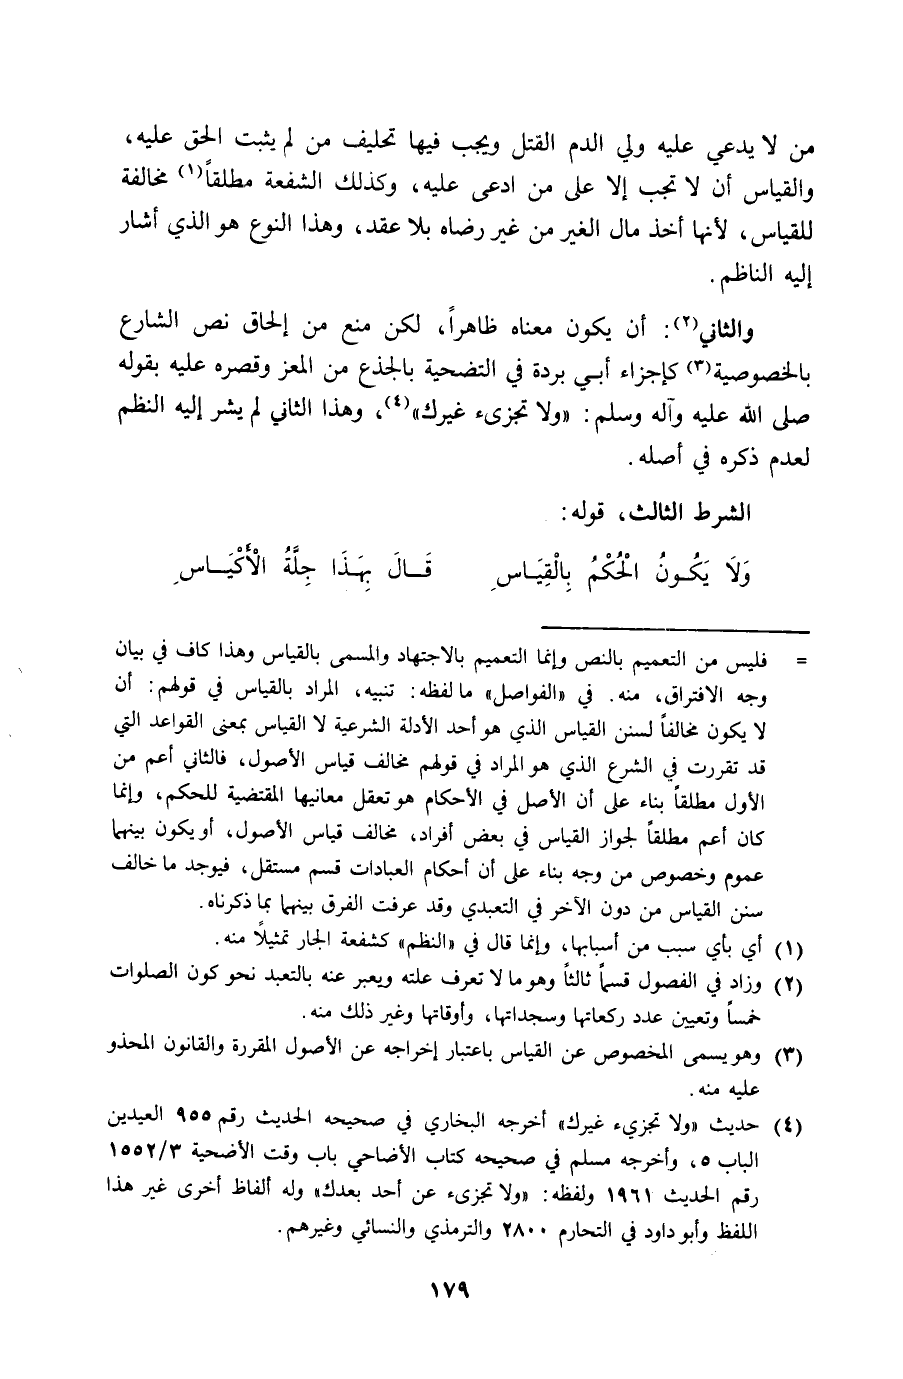 من لا يدعي عليه ولي الدم القتل ويجب فيها تحليف من لم يثبت الحق عليه،
والقياس أن لا تجب إلا على من ادعى عليه، وكذلك الشفعة مطلقاً(١) مخالفة
للقياس، لأنها أخذ مال الغير من غير رضاه بلا عقد، وهذا النوع هو الذي أشار
إليه الناظم.
والثاني(٢): أن يكون معناه ظاهراً، لكن منع من إلحاق نص الشارع
بالخصوصية(٣) كإجزاء أبي بردة في التضحية بالجذع من المعز وقصره عليه بقوله
صلى الله عليه وآله وسلم: «ولا تجزىء غيرك»(٤)، وهذا الثاني لم يشر إليه النظم
لعدم ذكره في أصله.
الشرط الثالث، قوله:
وَلَا يَكُونُ الْحُكْمُ بِالْقِيَاسِ قَالَ بِهَذَا جِلَّةُ الْأَكْيَاسِ
= فليس من التعميم بالنص وإنما التعميم بالاجتهاد والمسمى بالقياس وهذا كاف في بيان
وجه الافتراق، منه. في «الفواصل» ما لفظه: تنبيه، المراد بالقياس في قولهم: أن
لا يكون مخالفاً لسنن القياس الذي هو أحد الأدلة الشرعية لا القياس بمعنى القواعد التي
قد تقررت في الشرع الذي هو المراد في قولهم مخالف قياس الأصول، فالثاني أعم من
الأول مطلقاً بناء على أن الأصل في الأحكام هو تعقل معانيها المقتضية للحكم، وإنما
كان أعم مطلقاً لجواز القياس في بعض أفراد، مخالف قياس الأصول، أو يكون بينهما
عموم وخصوص من وجه بناء على أن أحكام العبادات قسم مستقل، فيوجد ما خالف
سنن القياس من دون الآخر في التعبدي وقد عرفت الفرق بينهما بما ذكرناه.
(١) أي بأي سبب من أسبابها، وإنما قال في «النظم» كشفعة الجار تمثيلاً منه.
(٢) وزاد في الفصول قسماً ثالثاً وهو ما لا تعرف علته ويعبر عنه بالتعبد نحو كون الصلوات
خمساً وتعيين عدد ركعاتها وسجداتها، وأوقاتها وغير ذلك منه.
(٣) وهو يسمى المخصوص عن القياس باعتبار إخراجه عن الأصول المقررة والقانون المحذو
عليه منه.
(٤) حديث «ولا تجزيء غيرك» أخرجه البخاري في صحيحه الحديث رقم ٩٥٥ العيدين
الباب ٥، وأخرجه مسلم في صحيحه كتاب الأضاحي باب وقت الأضحية ١٥٥٢/٣
رقم الحديث ١٩٦١ ولفظه: «ولا تجزىء عن أحد بعدك» وله ألفاظ أخرى غير هذا
اللفظ وأبو داود في التحارم ٢٨٠٠ والترمذي والنسائي وغيرهم.
١٧٩